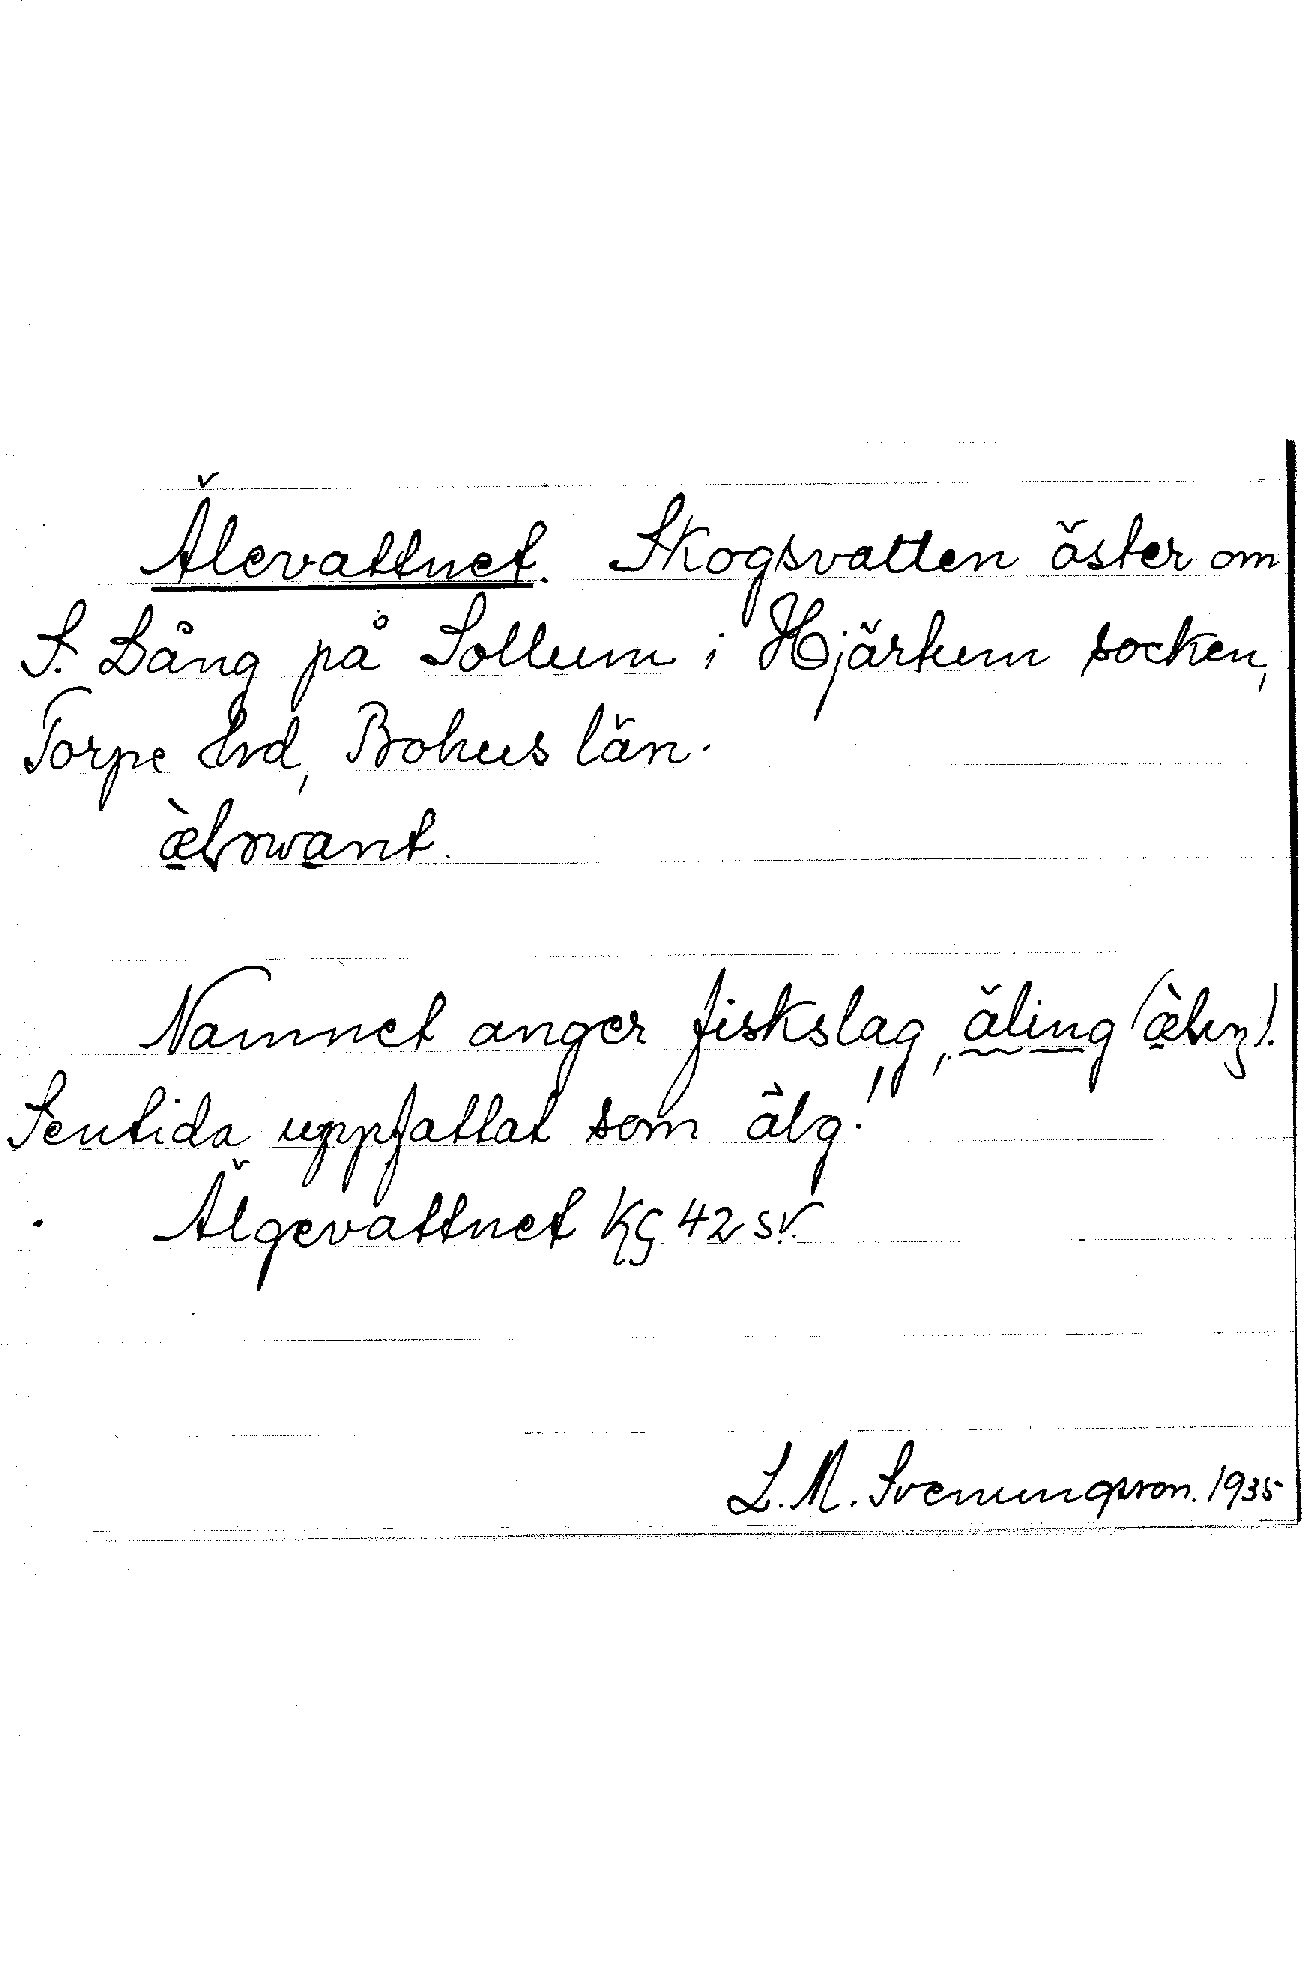 Älevattnet. Skogsvatten öster om
S. Bång på Sollum i Hjärtum socken,
Torpe hrd, Bohus län.
Namnet anger fiskslag, äling
Sentida uppfattat som älg!
Älgevattnet KG 42 SV.
L. M. Svenungsson. 1935